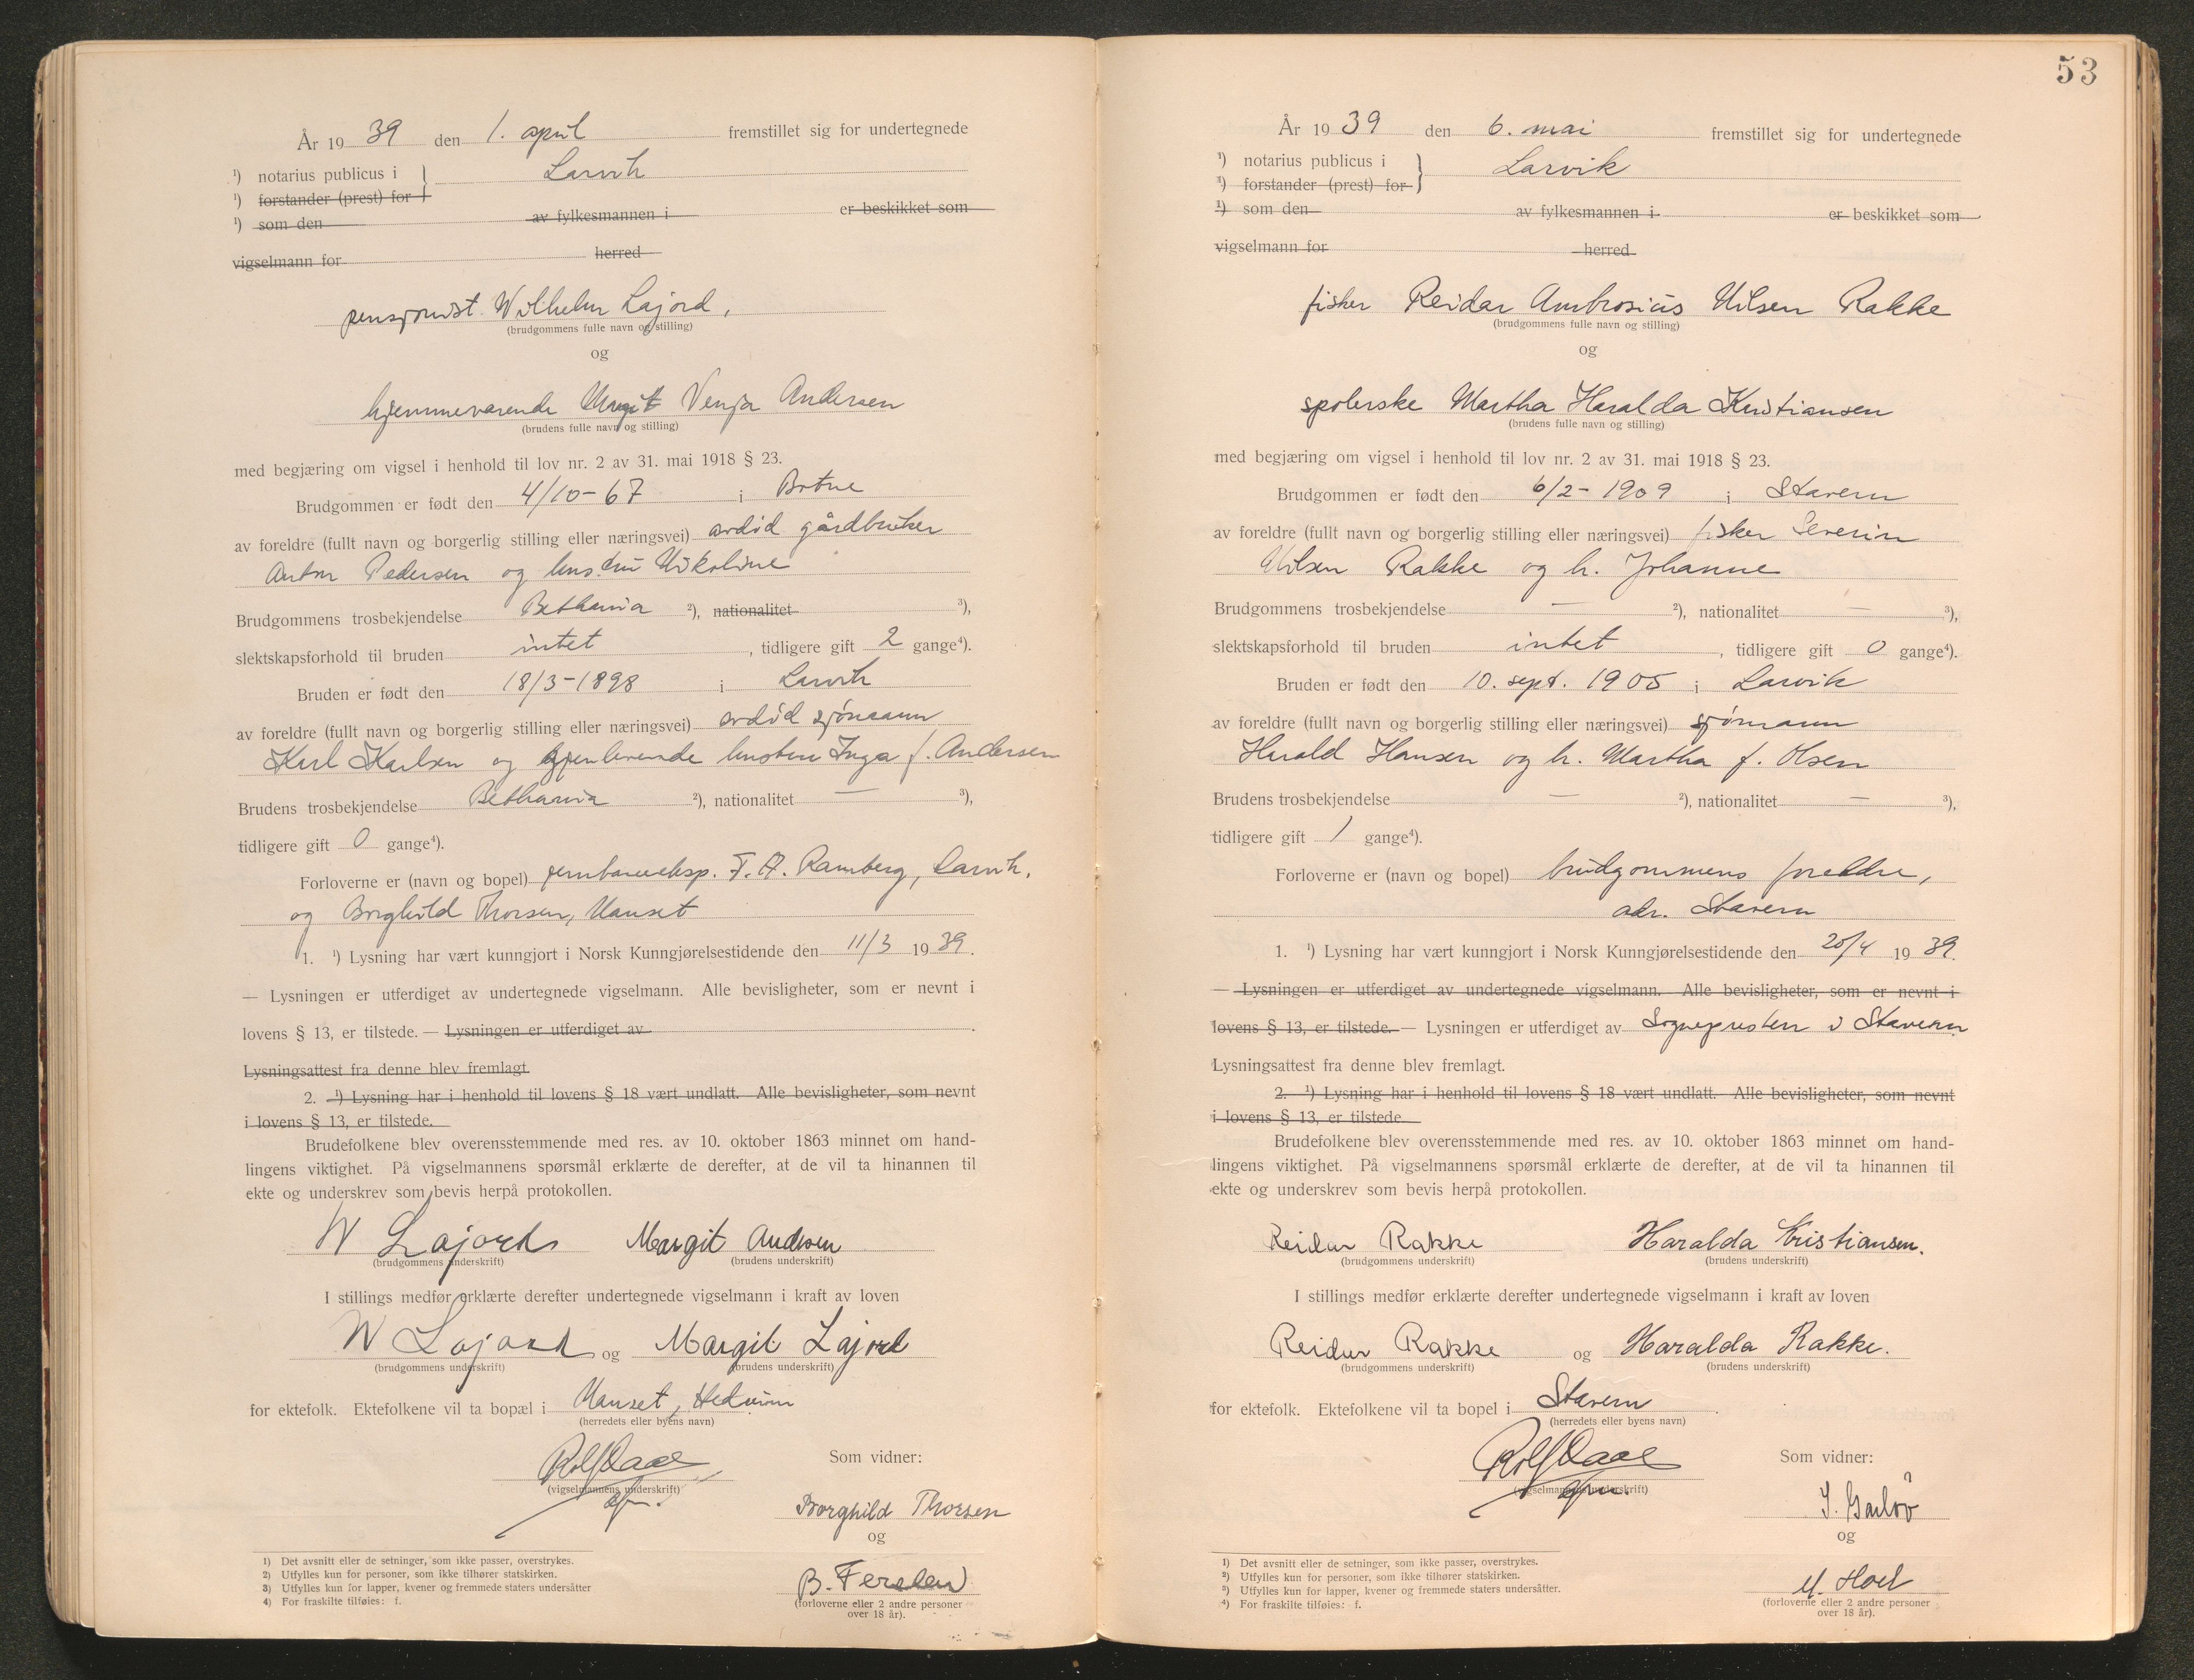 År 19 39 den 1. april fremstillet sig for undertegnede
¹) notarius publicus i } Larvik
¹) forstander (prest) for
¹) som den av fylkesmannen i er beskikket som
vigselmann for herred
pensjonist Wilhelm Lajord,
(brudgommens fulle navn og stilling)
og
hjemmeværende Margit Venja Andersen
(brudens fulle navn og stilling)
med begjæring om vigsel i henhold til lov nr. 2 av 31. mai 1918 § 23.
Brudgommen er født den 4/10-67 i Botne
av foreldre (fullt navn og borgerlig stilling eller næringsvei) avdød gårdbruker
Anton Pedersen og hustru Nikoline
Brudgommens trosbekjendelse Bethania ²), nationalitet ³),
slektskapsforhold til bruden intet, tidligere gift 2 gange⁴).
Bruden er født den 18/3-1898 i Larvik
av foreldre (fullt navn og borgerlig stilling eller næringsvei) avdød sjømann
Karl Karlsen og gjenlevende hustru Inga f. Andersen
Brudens trosbekjendelse Bethania ²), nationalitet — ³),
tidligere gift 0 gange⁴).
Forloverne er (navn og bopel) jernbaneeksp. F. A. Ramberg, Larvik,
og Borghild Thorsen, Nanset
1. ¹) Lysning har vært kunngjort i Norsk Kunngjørelsestidende den 11/3 19 39.
— Lysningen er utferdiget av undertegnede vigselmann. Alle bevisligheter, som er nevnt i
lovens § 13, er tilstede. — Lysningen er utferdiget av .
Lysningsattest fra denne blev fremlagt.
2. ¹) Lysning har i henhold til lovens § 18 vært undlatt. Alle bevisligheter, som nevnt
i lovens § 13, er tilstede.
Brudefolkene blev overensstemmende med res. av 10. oktober 1863 minnet om hand-
lingens viktighet. På vigselmannens spørsmål erklærte de derefter, at de vil ta hinannen til
ekte og underskrev som bevis herpå protokollen.
W Lajord Margit Andersen
(brudgommens underskrift) (brudens underskrift)
I stillings medfør erklærte derefter undertegnede vigselmann i kraft av loven
W Lajord og Margit Lajord
(brudgommens underskrift) (brudens underskrift)
for ektefolk. Ektefolkene vil ta bopæl i Nanset, Hedrum
(herredets eller byens navn)
Rolf Daae
(vigselmannens underskrift)
Som vidner:
Borghild Thorsen
og
B. Ferslew
(forloverne eller 2 andre personer
over 18 år).
1) Det avsnitt eller de setninger, som ikke passer, overstrykes.
2) Utfylles kun for personer, som ikke tilhører statskirken.
3) Utfylles kun for lapper, kvener og fremmede staters undersåtter
4) For fraskilte tilføies: f.
53
År 19 39 den 6. mai fremstillet sig for undertegnede
¹) notarius publicus i } Larvik
¹) forstander (prest) for
¹) som den av fylkesmannen i er beskikket som
vigselmann for herred
fisker Reidar Ambrosius Nilsen Rakke
(brudgommens fulle navn og stilling)
og
spolerske Martha Haralda Kristiansen
(brudens fulle navn og stilling)
med begjæring om vigsel i henhold til lov nr. 2 av 31. mai 1918 § 23.
Brudgommen er født den 6/2-1909 i Stavern
av foreldre (fullt navn og borgerlig stilling eller næringsvei) fisker Severin
Nilsen Rakke og h. Johanne
Brudgommens trosbekjendelse — ²), nationalitet — ³),
slektskapsforhold til bruden intet, tidligere gift 0 gange⁴).
Bruden er født den 10. sept. 1905 i Larvik
av foreldre (fullt navn og borgerlig stilling eller næringsvei) sjømann
Harald Hansen og h. Martha f. Olsen
Brudens trosbekjendelse — ²), nationalitet — ³),
tidligere gift 1 gange⁴).
Forloverne er (navn og bopel) brudgommens foreldre,
adr. Stavern
1. ¹) Lysning har vært kunngjort i Norsk Kunngjørelsestidende den 20/4 19 39.
— Lysningen er utferdiget av undertegnede vigselmann. Alle bevisligheter, som er nevnt i
lovens § 13, er tilstede. — Lysningen er utferdiget av Sognepresten i Stavern
Lysningsattest fra denne blev fremlagt.
2. ¹) Lysning har i henhold til lovens § 18 vært undlatt. Alle bevisligheter, som nevnt
i lovens § 13, er tilstede.
Brudefolkene blev overensstemmende med res. av 10. oktober 1863 minnet om hand-
lingens viktighet. På vigselmannens spørsmål erklærte de derefter, at de vil ta hinannen til
ekte og underskrev som bevis herpå protokollen.
Reidar Rakke Haralda Kristiansen.
(brudgommens underskrift) (brudens underskrift)
I stillings medfør erklærte derefter undertegnede vigselmann i kraft av loven
Reidar Rakke og Haralda Rakke.
(brudgommens underskrift) (brudens underskrift)
for ektefolk. Ektefolkene vil ta bopel i Stavern.
(herredets eller byens navn)
Rolf Daae
(vigselmannens underskrift)
Som vidner:
og
M. Hoel
(forloverne eller 2 andre personer
over 18 år).
1) Det avsnitt eller de setninger, som ikke passer, overstrykes.
2) Utfylles kun for personer, som ikke tilhører statskirken.
3) Utfylles kun for lapper, kvener og fremmede staters undersåtter.
4) For fraskilte tilføies: f.